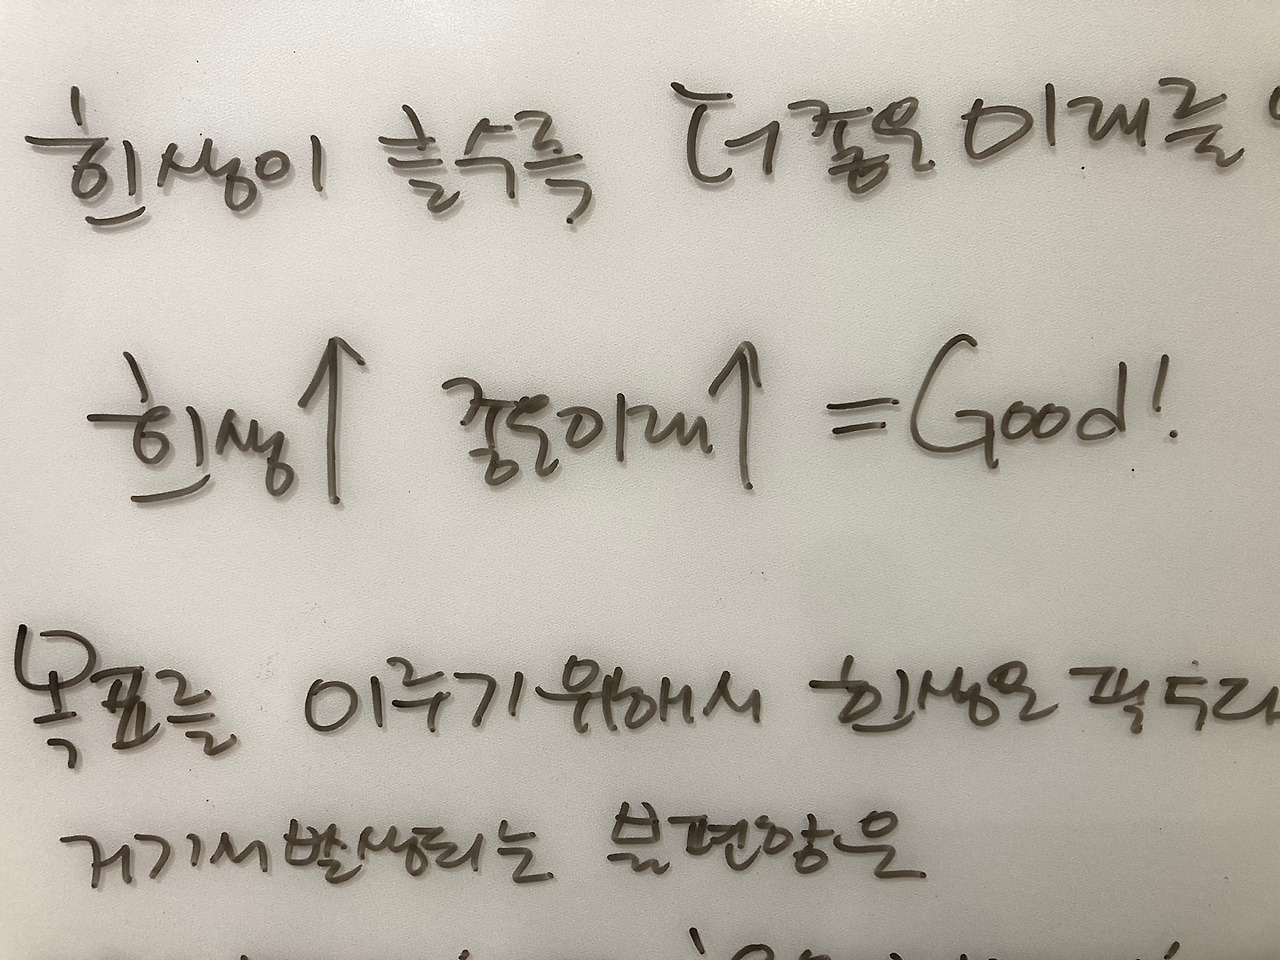 희생이 클수록 더 좋은 미래를
희생↑ 좋은미래↑ = Good!
목표를 이루기 위해서 희생은 필수라
거기서 발생되는 불편함은